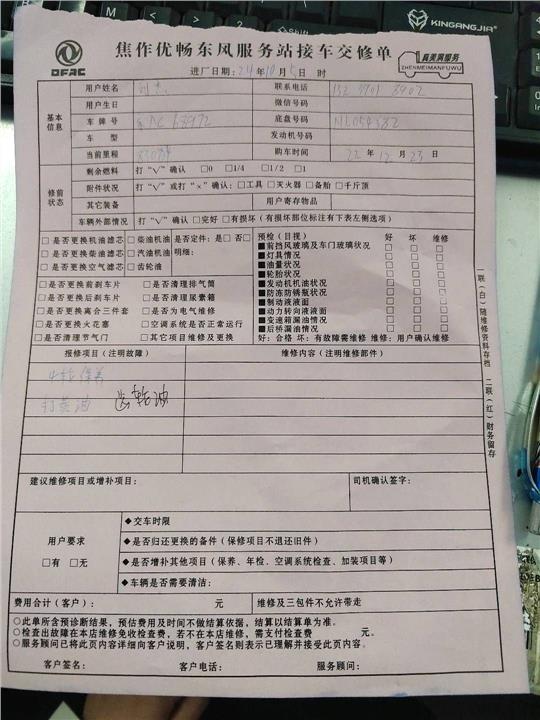 KINGANGJIA
DFAC
焦作优畅东风服务站接车交修单
真美满服务
ZHENMEIMANFUWU
进厂日期：24年10月5日 时
基本信息
用户姓名 联系电话
用户生日 微信号码
车牌号 底盘号码 NL054382
车型 发动机号码
当前里程 购车时间 22年12月23日
修前状态
剩余燃料 打“√”确认 □0 □1/4 □1/2 □1
附件状况 打“√”或打“×”确认：□工具 □灭火器 □备胎 □千斤顶
其它装备 用户寄存物品
车辆外部情况 打“√”确认 □完好 □有损坏（有损坏部位标注有下表左侧选项）
□是否更换机油滤芯 □柴油机油 是否定件：是□ 否□
□是否更换柴油滤芯 □汽油机油 明细：
□是否更换空气滤芯 □齿轮油
□是否更换前刹车片 □是否清理排气筒
□是否更换后刹车片 □是否清理尿素箱
□是否更换离合三件套 □是否为电气维修
□是否更换火花塞 □空调系统是否正常运行
□是否清理节气门 □其它项目维修及更换
预检（目视） 好 坏 维修
■前挡风玻璃及车门玻璃状况 □ □ □
■灯具情况 □ □ □
■油量状况 □ □ □
■轮胎状况 □ □ □
■发动机机油状况 □ □ □
■防冻防锈瓶状况 □ □ □
■制动液液面 □ □ □
■动力转向液液面 □ □ □
■变速箱漏油情况 □ □ □
■后桥漏油情况 □ □ □
好：合格 坏：有故障需维修 维修：用户确认维修
报修项目（注明故障） 维修内容（注明维修部件）
保养
打黄油 齿轮油
建议维修项目或增补项目： 司机确认签字：
用户要求
□有 □无
◆交车时限
◆是否归还更换的备件（保修项目不退还旧件）
◆是否增补其他项目（保养、年检、空调系统检查、加装项目等）
◆车辆是否需要清洁：
费用合计（客户）： 元 维修及三包件不允许带走
○此单所含预诊断结果，预估费用及时间不做结算依据，结算以结算单为准。
○检查出故障在本店维修免收检查费，若不在本店维修，需支付检查费 元。
○服务顾问已将此页内容详细向客户说明，客户签名则表示已理解并接受此页内容。
客户签名： 客户电话： 服务顾问：
一联（白）随维修资料存档 二联（红）财务留存